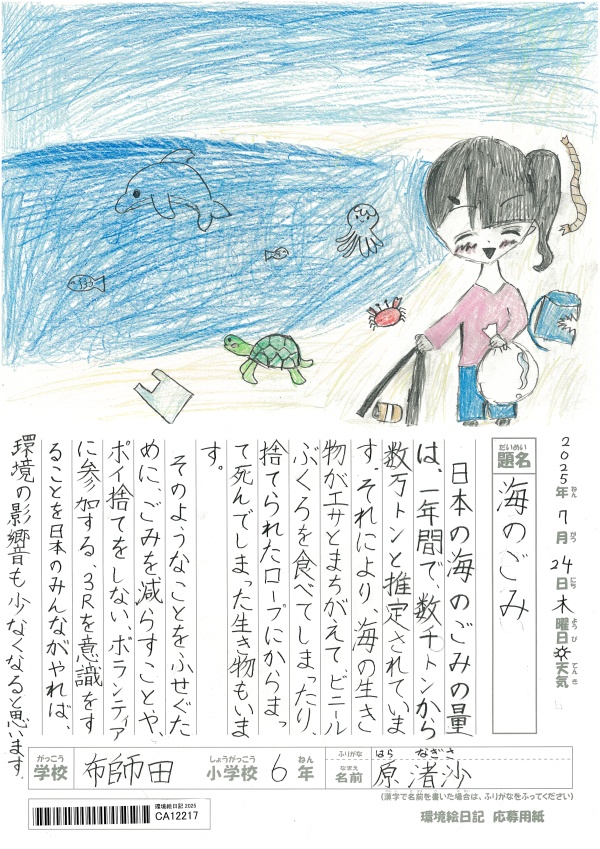 2025年ねん 7月がつ 24日にち 木曜日ようび ☼天気てんき
だいめい
題名
海のごみ
日本の海のごみの量
は、一年間で、数千トンから
数万トンと推定されていま
す。それにより、海の生き
物がエサとまちがえて、ビニール
ぶくろを食べてしまったり、
捨てられたロープにからまっ
て死んでしまった生き物もいま
す。
そのようなことをふせぐた
めに、ごみを減らすことや、
ポイ捨てをしない、ボランティア
に参加する、3Rを意識をす
ることを日本のみんながやれば、
環境の影響音も少なくなると思います。
がっこう
学校 布師田
しょうがっこう ねん
小学校 6年
ふりがな はら なぎさ
なまえ
名前 原 渚沙
(漢字で名前を書いた場合は、ふりがなをふってください)
環境絵日記 2025
CA12217
環境絵日記 応募用紙